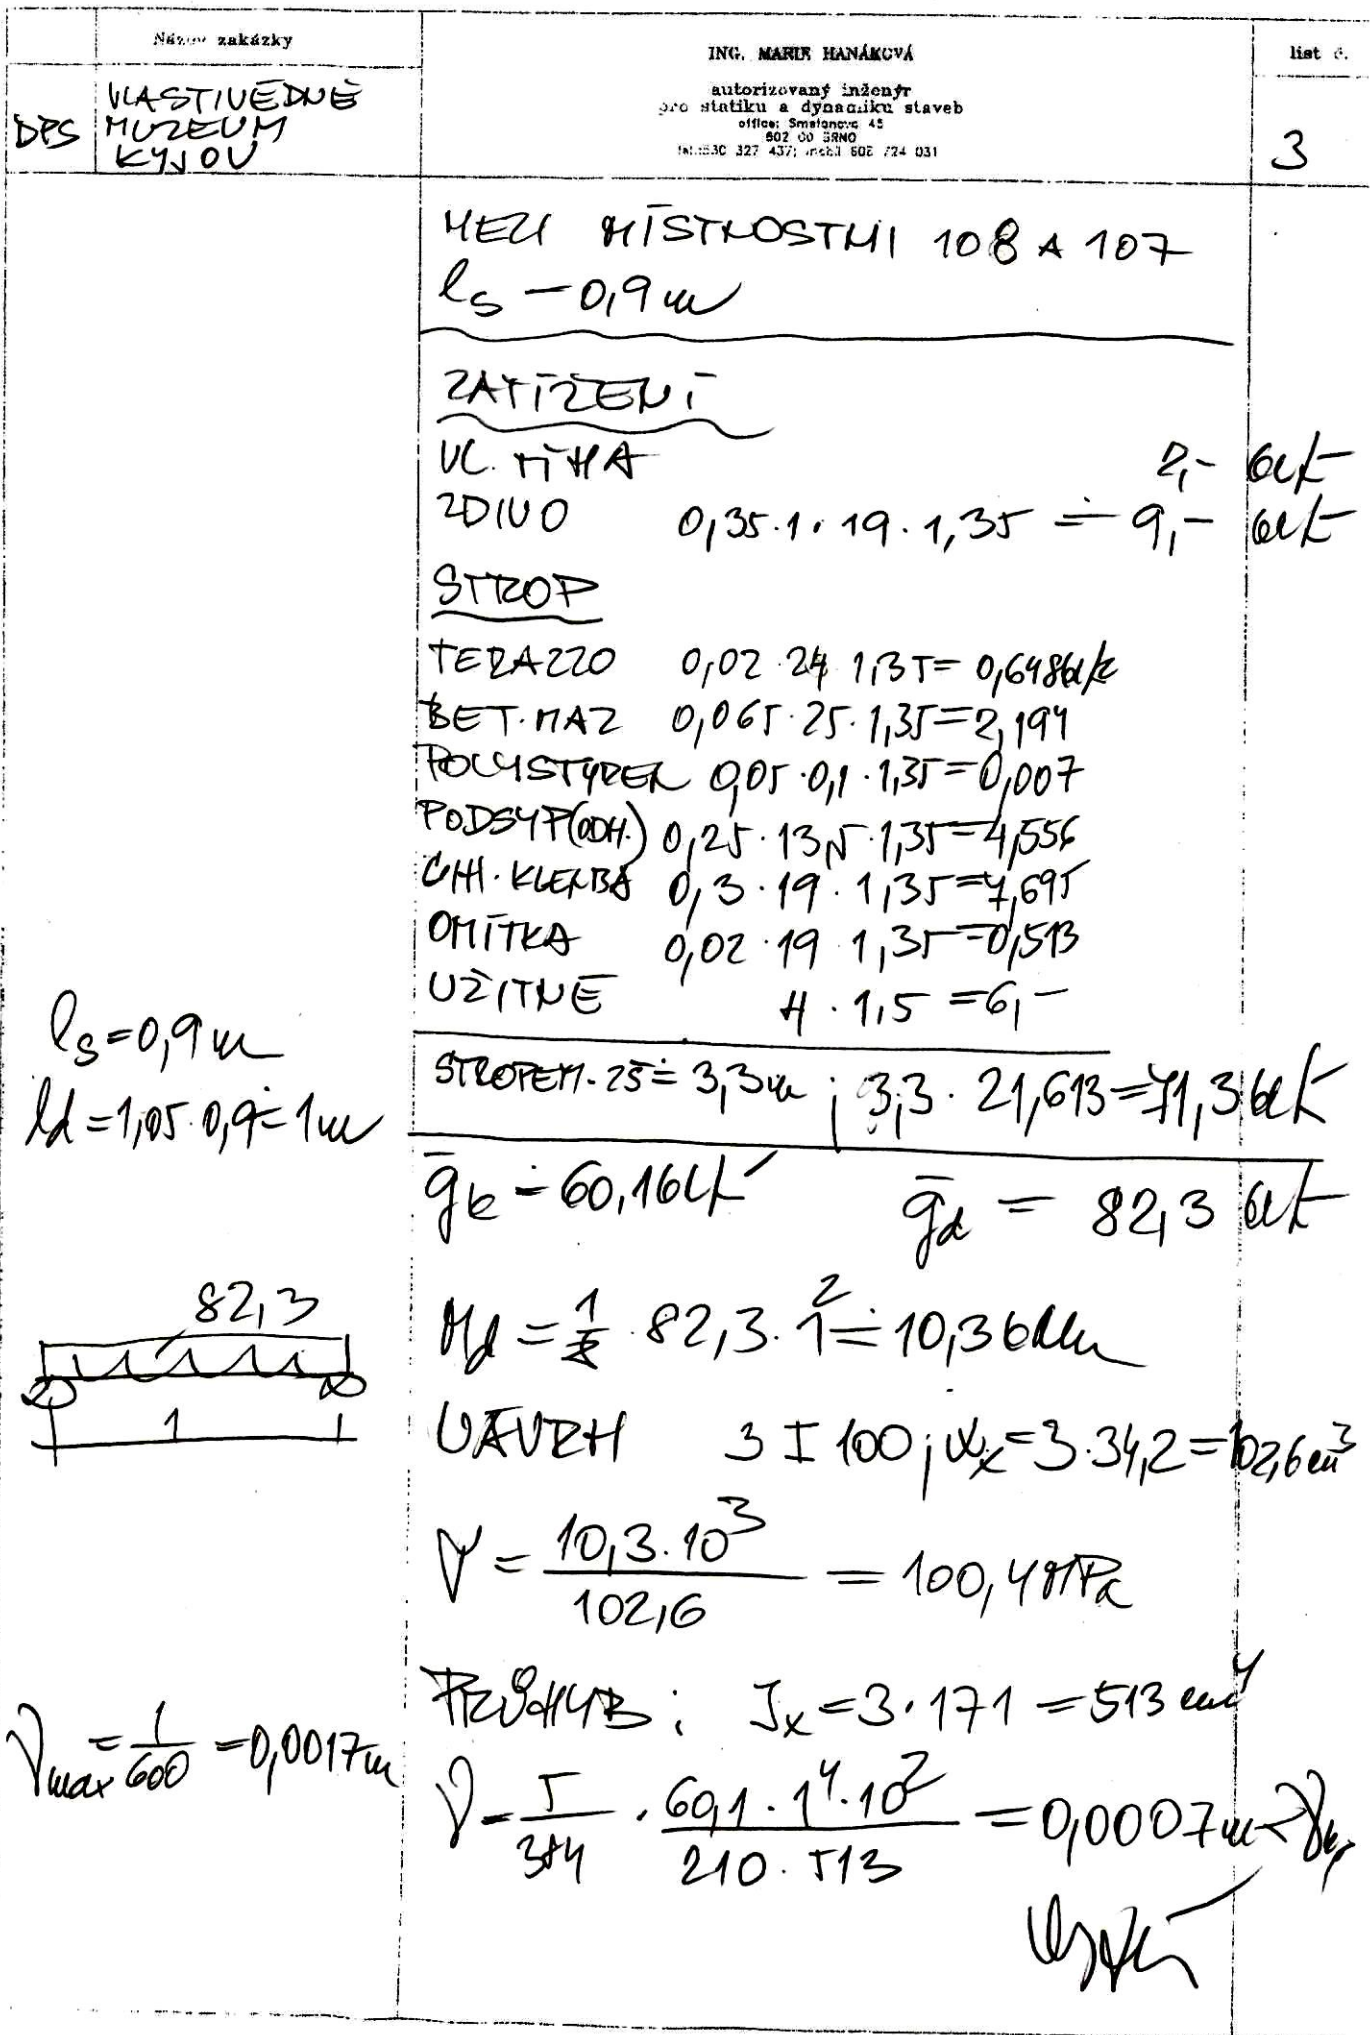 Název zakázky
ING. MARIE HANÁKOVÁ
list č.
autorizovaný inženýr
pro statiku a dynamiku staveb
office: Smetanova 45
602 00 BRNO
tel.:530 327 437; mobil 608 724 031
DPS
VLASTIVĚDNÉ
MUZEUM
KYJOV
3
MEZI MÍSTNOSTMI 108 A 107
ls – 0,9 m
ZATÍŽENÍ
VL. TÍHA 2,-
ZDIVO 0,35.1.19.1,35 ≐ 9,-
STROP
TERAZZO 0,02.24 1,35 = 0,648
BET.MAZ 0,065.25.1,35=2,194
POLYSTYREN 0,05.0,1.1,35=0,007
PODSYP(ODH.) 0,25.13,5.1,35=4,556
CIH. KLENBA 0,3.19.1,35=7,695
OMÍTKA 0,02.19 1,35=0,513
UŽITNÉ 4.1,5 =6,-
ls=0,9 m
ld=1,05.0,9≐1m
3,3m ; 3,3. 21,613=71,3
gk = 60,1 gd = 82,3
82,3
1
Md = 1/8 .82,3.1² ≐ 10,3 kNm
NÁVRH 3 I 100; Wx=3.34,2=102,6 cm³
σ = 10,3.10³ / 102,6 = 100,4 MPa
PRŮHYB: Jx=3.171 = 513 cm⁴
νmax = 1/600 = 0,0017m
ν = 5/384 . 60,1.1⁴.10² / 210.513 = 0,0007m <